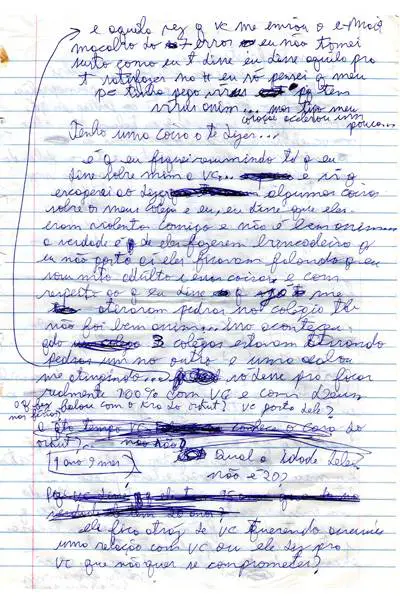 e aquela vez q vc me enviou o e-mail
macabro do erro eu não tomei
susto como eu t disse eu disse aquilo pra
t satisfazer na # eu só pensei q meu
pc tinha pego virus pq tem
virus assim... mas tipo meu
coração acelerou um
pouco...
Tenho uma coisa a te dizer...
é q eu fiquei resumindo td q eu
disse sobre mim a vc... e vi q
exagerei ao dizer algumas coisas
sobre os meus colegas e eu, eu disse que eles
eram violentos comigo e não é bem assim
a verdade é q eles fazem brincadeiras q
eu não gosto aí eles ficaram falando q eu
sou mto adulto e essas coisas, e com
respeito ao q eu disse q me
atiraram pedras no colégio tb
não foi bem assim... isso aconteceu
qdo 3 colegas estavam atirando
pedras um no outro e uma acabou
me atingindo... só disse pra ficar
realmente 100% com vc e com Deus
falou com o kra do orkut? vc gosta dele?
a qto tempo vc conhece o cara do
orkut? não não?
1 ano 9 mes Qual a idade dele?
não é 20?
ele fica atraz de vc querendo
uma relação com vc ou ele diz pra
vc que não quer se comprometer?